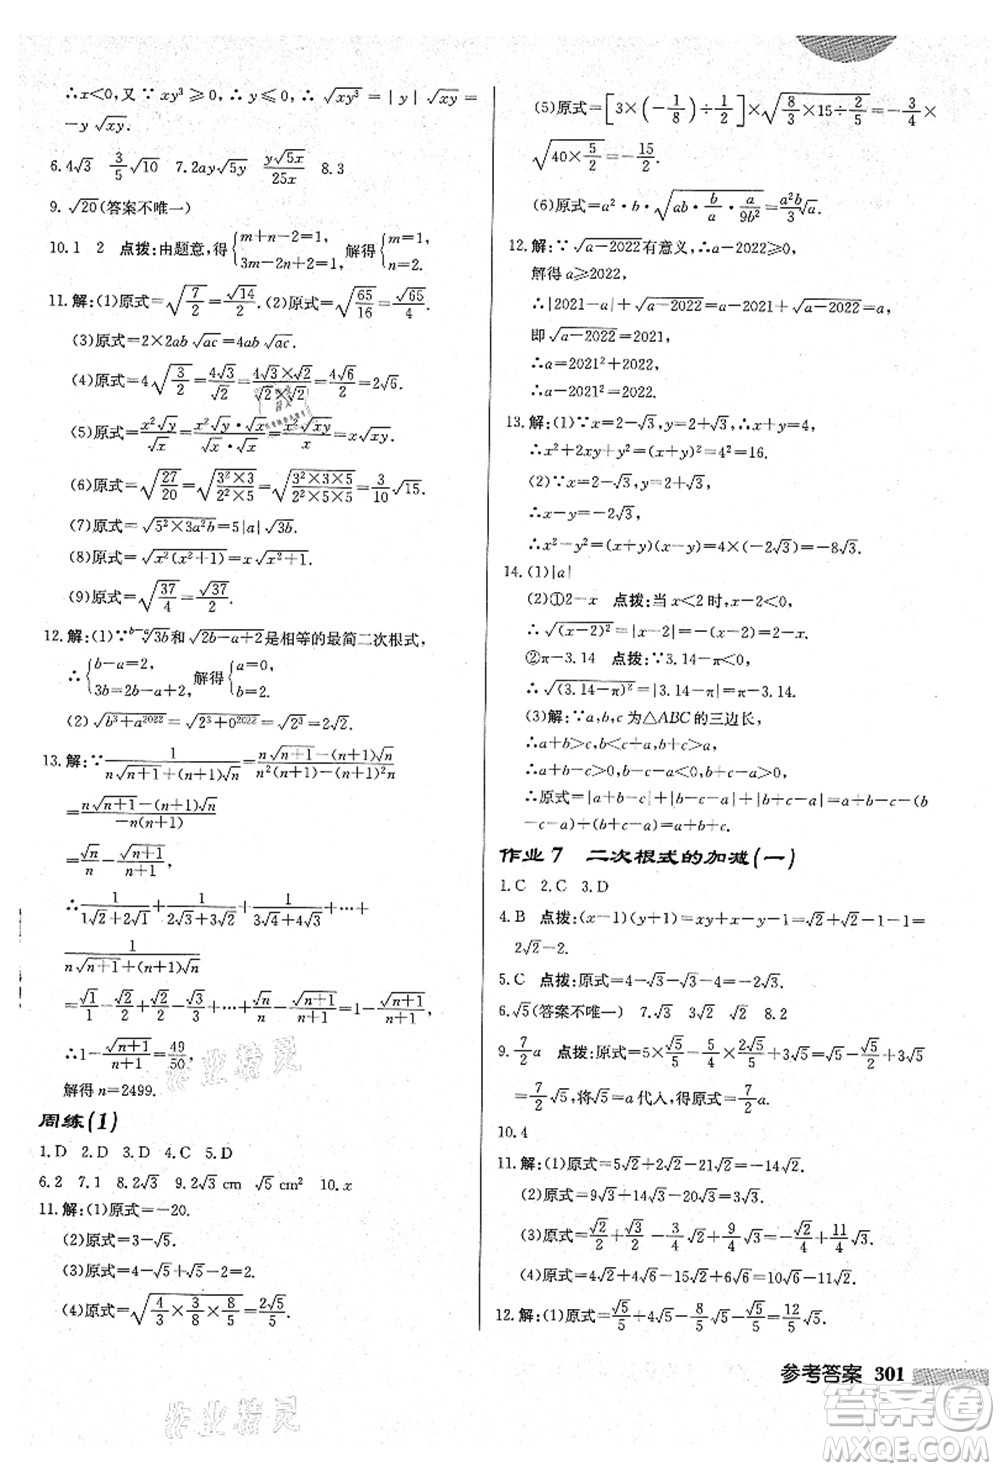 ∴x<0,又∵xy³≥0,∴y≤0,∴√(xy³)=|y|√(xy)=
-y√(xy).
6.4√3  3/5√10  7.2ay√(5y)  y√(5x)/(25x)  8.3
9.√20(答案不唯一)
10.1  2  点拨:由题意,得{m+n-2=1, 3m-n-2+... 
11.解:(1)原式=√(7/2)=√14/2.(2)原式=√(65/16)=√65/4.
(3)原式=2×2ab√(ac)=4ab√(ac).
(4)原式=4√(3/2)=4√3/√2=(4√3×√2)/(√2×√2)=4√6/2=2√6.
(5)原式=x²√y/√x=(x²√y·√x)/(√x·√x)=x²√(xy)/x=x√(xy).
(6)原式=√(27/20)=√((3²×3)/(2²×5))=√((3²×3×5)/(2²×5×5))=3/10√15.
(7)原式=√(5²×3a²b)=5|a|√(3b).
(8)原式=√(x²(x²+1))=x√(x²+1).
(9)原式=√(37/4)=√37/2.
12.解:(1)∵ᵇ⁻ᵃ√(3b)和√(2b-a+2)是相等的最简二次根式,
∴{b-a=2, 3b=2b-a+2,解得{a=0, b=2.
(2)√(b³+a²⁰²²)=√(2³+0²⁰²²)=√(2³)=2√2.
13.解:∵1/(n√(n+1)+(n+1)√n)=(n√(n+1)-(n+1)√n)/(n²(n+1)-(n+1)²n)
=(n√(n+1)-(n+1)√n)/(-n(n+1))
=√n/n-√(n+1)/(n+1),
∴1/(1√2+2√1)+1/(2√3+3√2)+1/(3√4+4√3)+⋯+
1/(n√(n+1)+(n+1)√n)
=√1/1-√2/2+√2/2-√3/3+⋯+√n/n-√(n+1)/(n+1)=1-√(n+1)/(n+1),
∴1-√(n+1)/(n+1)=49/50,
解得n=2499.
周练(1)
1.D  2.D  3.D  4.D  5.D
6.2  7.1  8.2√3  9.2√3 cm  √5 cm²  10.x
11.解:(1)原式=-20.
(2)原式=3-√5.
(3)原式=4-√5+√5-2=2.
(4)原式=√(4/3×3/5×8/5)=2√5/5.
(5)原式=[3×(-1/8)÷1/2]×√(8/3×15÷2/5)=-3/4×
√(40×5/2)=-15/2.
(6)原式=a²·b·√(ab·b/a·a/(9b²))=a²b/3√a.
12.解:∵√(a-2022)有意义,∴a-2022≥0,
解得a≥2022,
∴|2021-a|+√(a-2022)=a-2021+√(a-2022)=a,
即√(a-2022)=2021,
∴a=2021²+2022,
∴a-2021²=2022.
13.解:(1)∵x=2-√3,y=2+√3,∴x+y=4,
∴x²+2xy+y²=(x+y)²=4²=16.
(2)∵x=2-√3,y=2+√3,
∴x-y=-2√3,
∴x²-y²=(x+y)(x-y)=4×(-2√3)=-8√3.
14.(1)|a|
(2)①2-x  点拨:当x<2时,x-2<0,
∴√((x-2)²)=|x-2|=2-x.
②π-3.14  点拨:∵3.14-π<0,
∴√((3.14-π)²)=|3.14-π|=π-3.14.
(3)解:∵a,b,c为△ABC的三边长,
∴a+b>c,b<a+c,
∴a+b-c>0,b-c-a<0,
∴原式=|a+b-c|+|b-c-a|=(a+b-c)-
(b-c-a)=a+b-c-b+c+a=2a.
作业7  二次根式的加减(一)
1.C  2.C  3.D
4.B  点拨:(x-1)(y+1)=xy+x-y-1=√2+√2-1-1=
2√2-2.
5.C  点拨:原式=4-√3-√3-√3=4-3√3.
6.√5(答案不唯一)  7.√3  3√2  √2  8.2
9.7/2a  点拨:原式=5×√5/5-5/4×2√5/5+3√5=√5-√5/2+3√5
=7/2√5,将√5=a代入,得原式=7/2a.
10.4
11.解:(1)原式=5√2+2√2-21√2=-14√2.
(2)原式=9√3+14√3-20√3=3√3.
(3)原式=√2/2+2√3/3-√2+9√3/4=-√2/2+11/4√3.
(4)原式=4√2-6√2+3√2+10√2=11√2.
12.解:(1)原式=√5/5+4√5-8/5√5-√5/5=12/5√5.
参考答案 301
作业精灵
作业精灵
答案圈
MXQE.COM